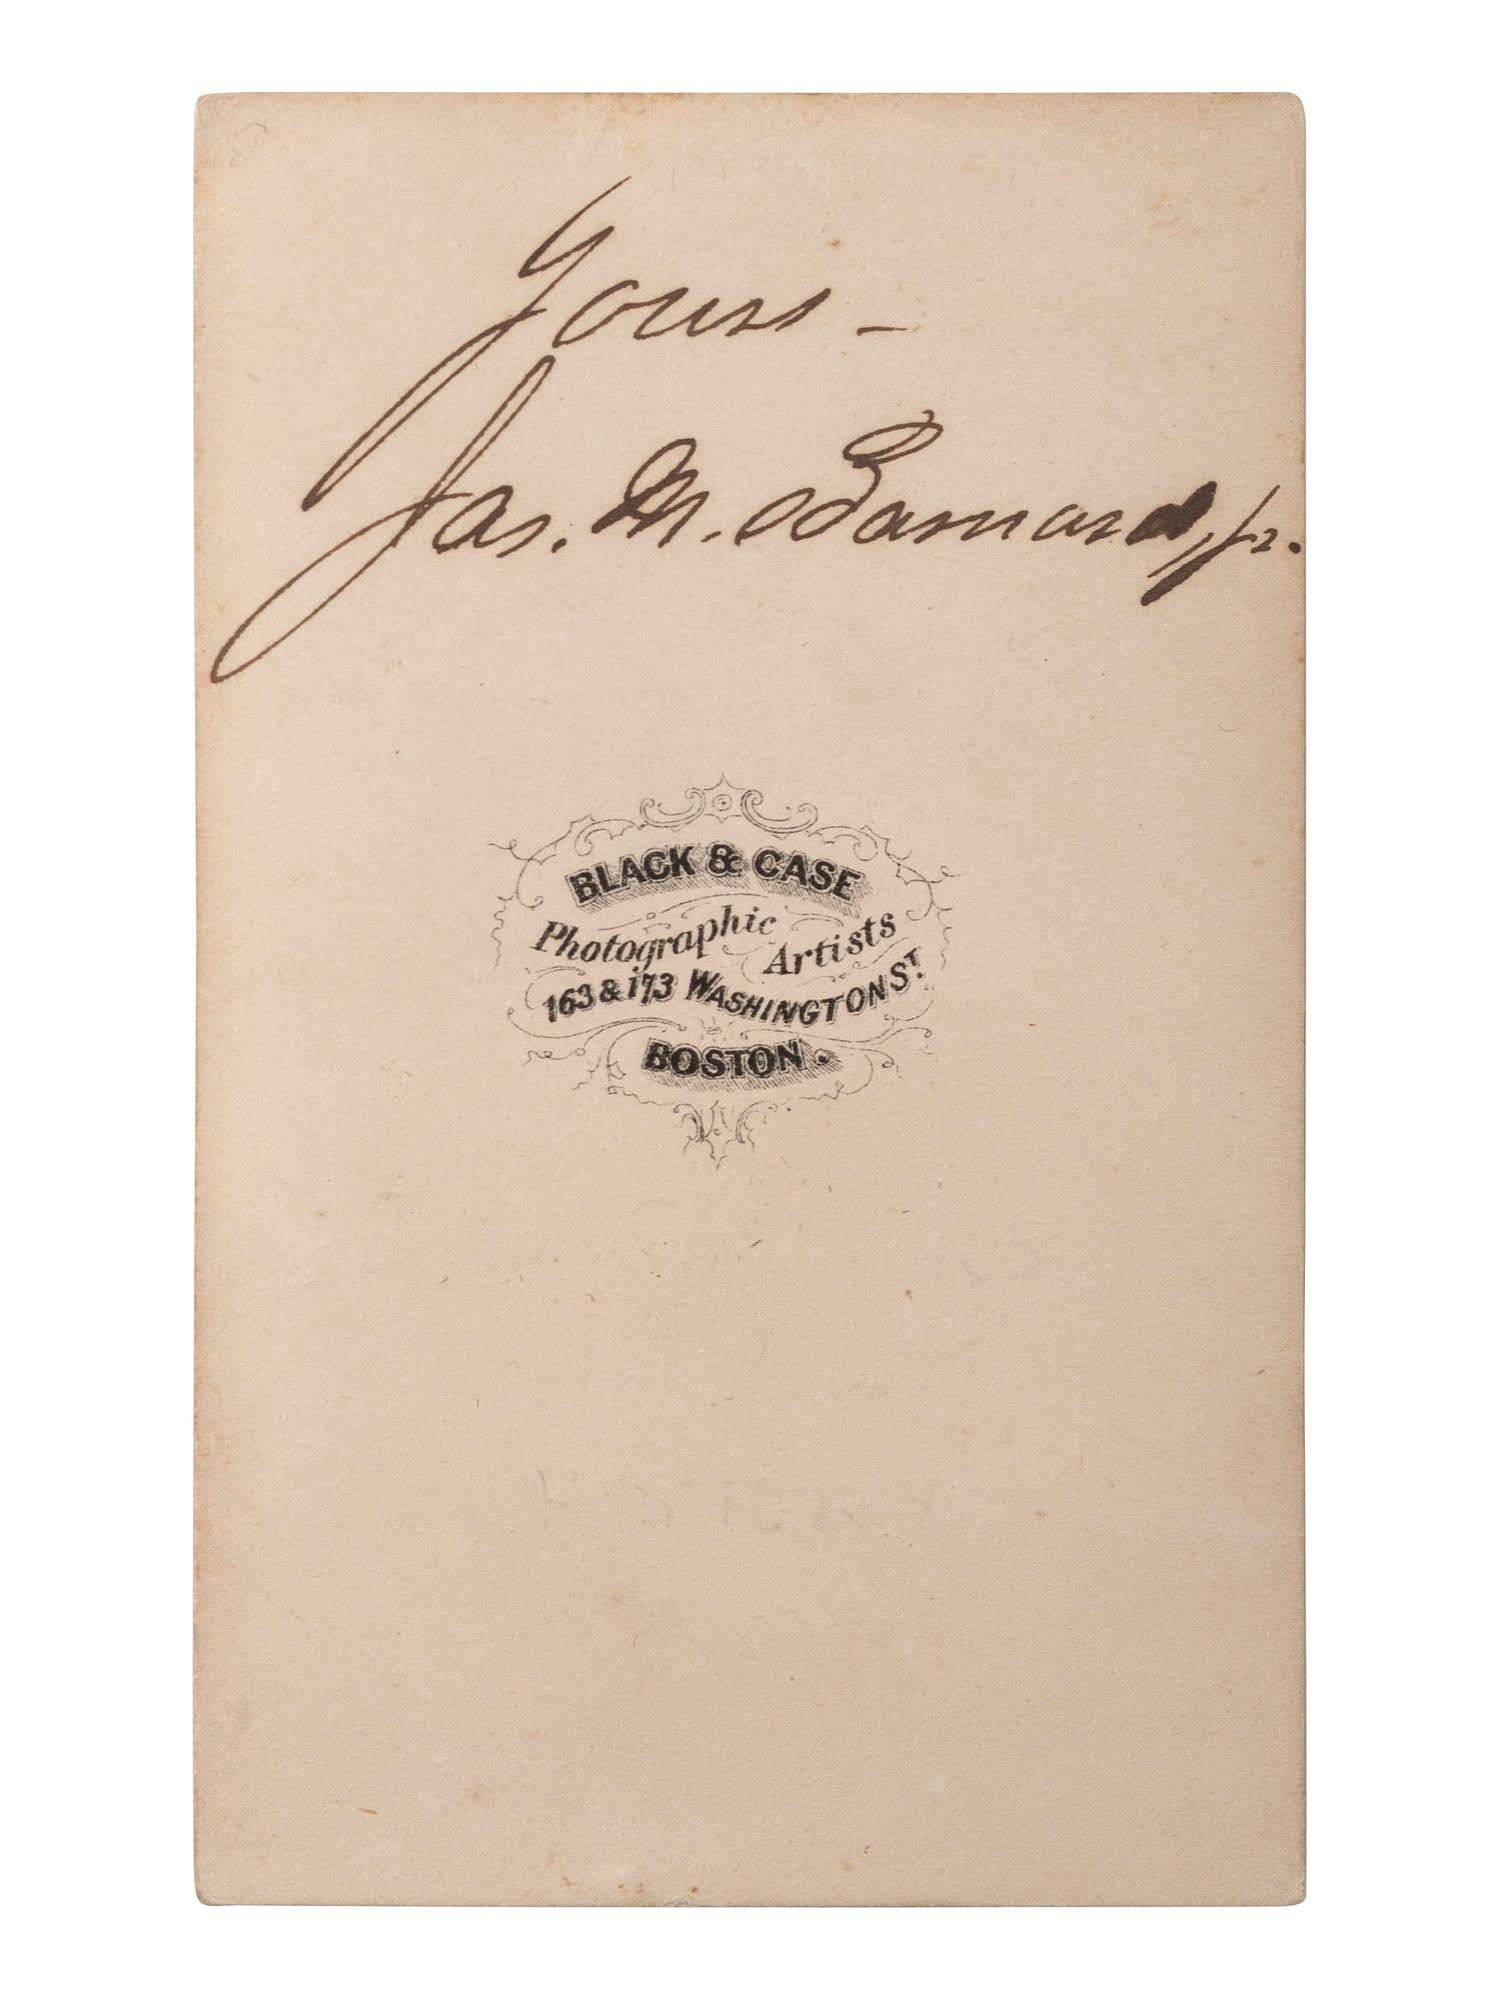 Yours –
Jas. M. Barnard, Jr.
BLACK & CASE
Photographic Artists
163 & 173 WASHINGTON ST
BOSTON.